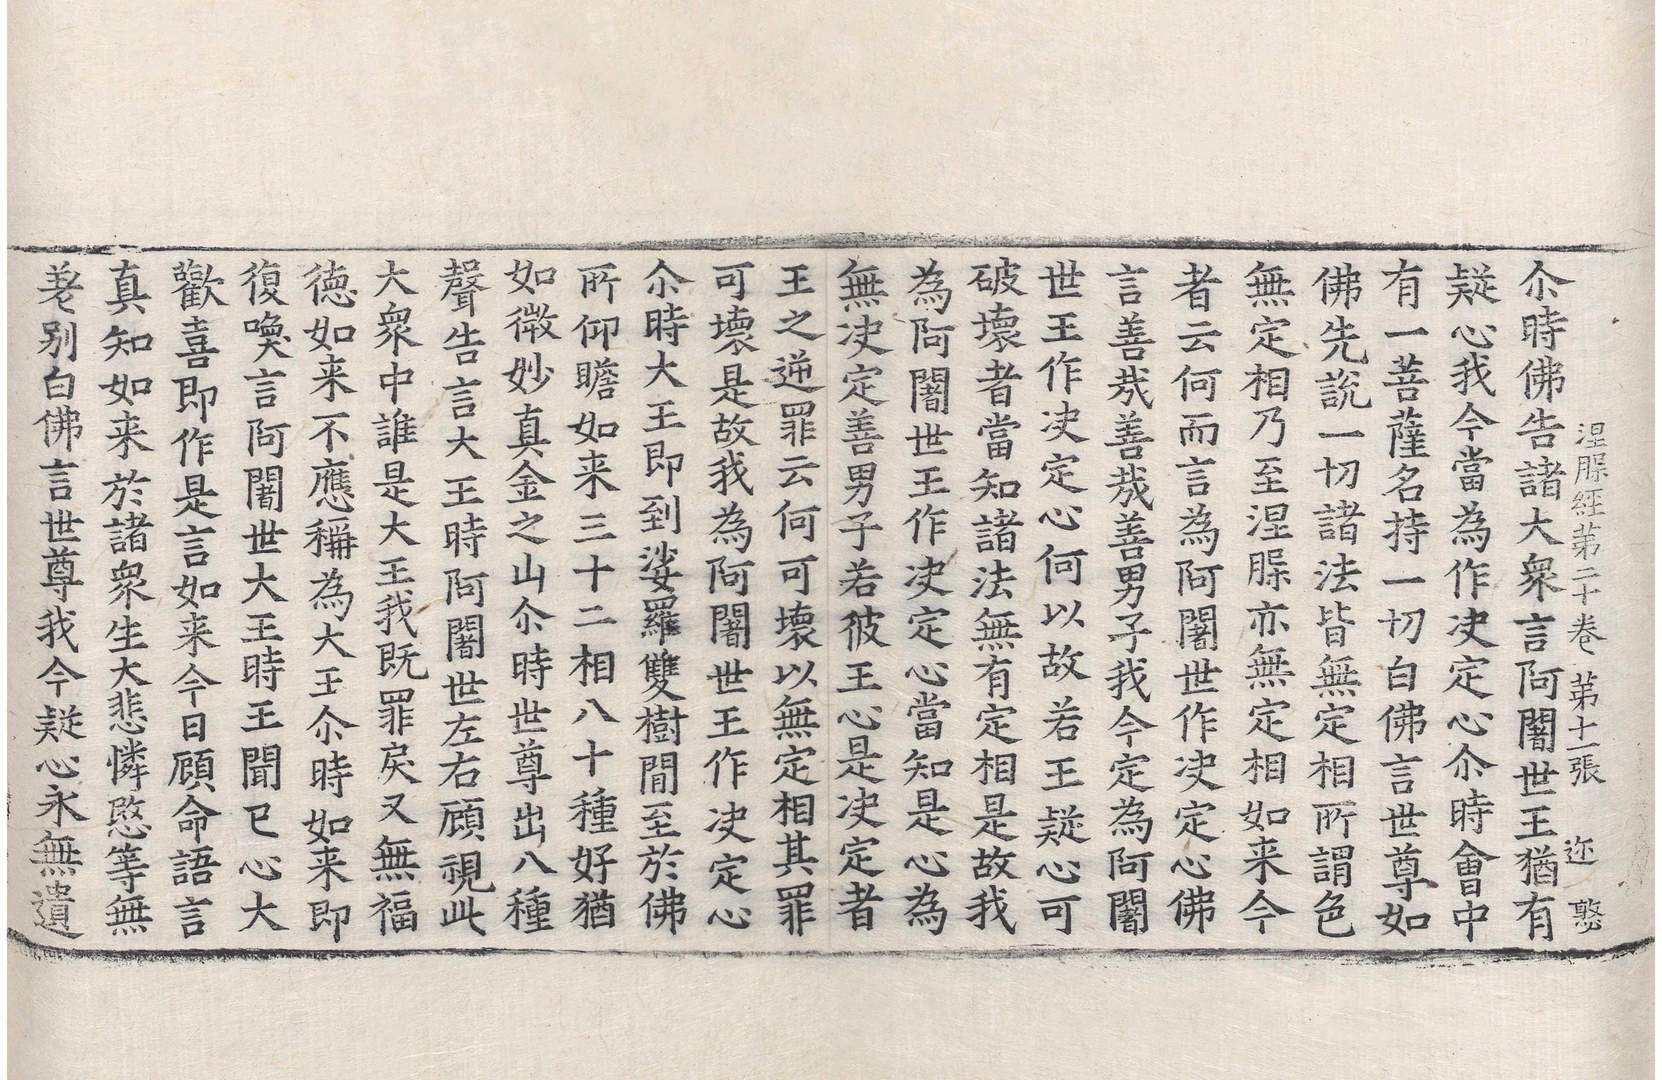 涅槃經第二十卷 第十一張 迩 憨
尒時佛告諸大衆言阿闍世王猶有
疑心我今當為作决定心尒時會中
有一菩薩名持一切白佛言世尊如
佛先說一切諸法皆無定相所謂色
無定相乃至涅槃亦無定相如来今
者云何而言為阿闍世作决定心佛
言善㢤善㢤善男子我今定為阿闍
世王作决定心何以故若王疑心可
破壞者當知諸法無有定相是故我
為阿闍世王作决定心當知是心為
無决定善男子若彼王心是决定者
王之逆罪云何可壞以無定相其罪
可壞是故我為阿闍世王作决定心
尒時大王即到娑羅雙樹間至於佛
所仰瞻如来三十二相八十種好猶
如微妙真金之山尒時世尊出八種
聲告言大王時阿闍世左右顧視此
大衆中誰是大王我既罪戾又無福
德如来不應稱為大王尒時如来即
復喚言阿闍世大王時王聞已心大
歡喜即作是言如来今日顧命語言
真知如来於諸衆生大悲憐愍等無
差別白佛言世尊我今疑心永無遺